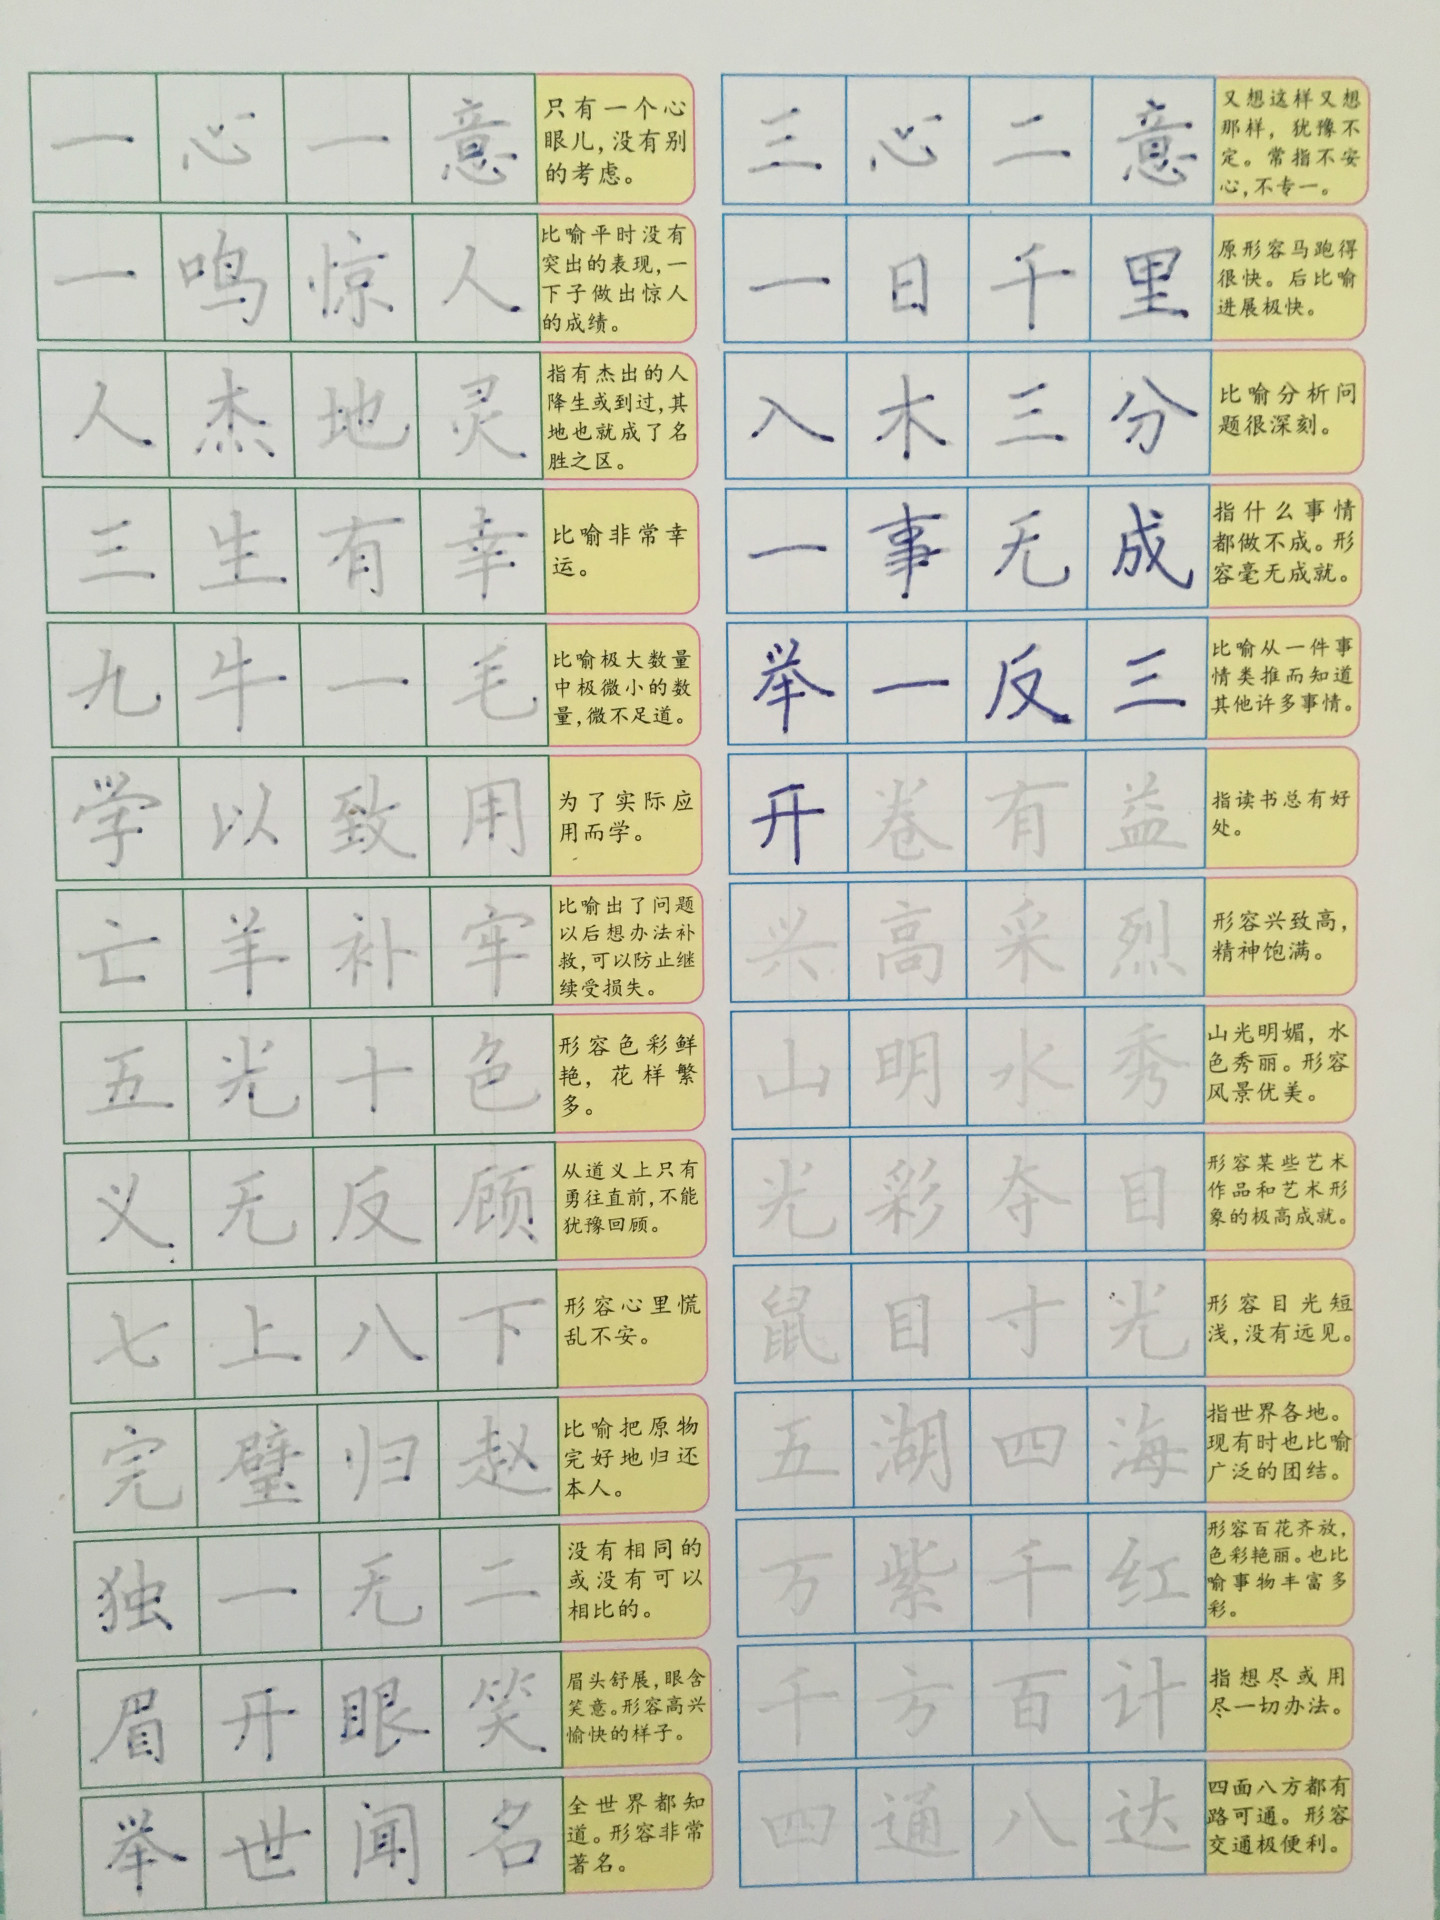 一心一意
只有一个心
眼儿,没有别
的考虑。
一鸣惊人
比喻平时没有
突出的表现,一
下子做出惊人
的成绩。
人杰地灵
指有杰出的人
降生或到过,其
地也就成了名
胜之区。
三生有幸
比喻非常幸
运。
九牛一毛
比喻极大数量
中极微小的数
量,微不足道。
学以致用
为了实际应
用而学。
亡羊补牢
比喻出了问题
以后想办法补
救,可以防止继
续受损失。
五光十色
形容色彩鲜
艳,花样繁
多。
义无反顾
从道义上只有
勇往直前,不能
犹豫回顾。
七上八下
形容心里慌
乱不安。
完璧归赵
比喻把原物
完好地归还
本人。
独一无二
没有相同的
或没有可以
相比的。
眉开眼笑
眉头舒展,眼含
笑意。形容高兴
愉快的样子。
举世闻名
全世界都知
道。形容非常
著名。
三心二意
又想这样又想
那样,犹豫不
定。常指不安
心,不专一。
一日千里
原形容马跑得
很快。后比喻
进展极快。
入木三分
比喻分析问
题很深刻。
一事无成
指什么事情
都做不成。形
容毫无成就。
举一反三
比喻从一件事
情类推而知道
其他许多事情。
开卷有益
指读书总有好
处。
兴高采烈
形容兴致高,
精神饱满。
山明水秀
山光明媚,水
色秀丽。形容
风景优美。
光彩夺目
形容某些艺术
作品和艺术形
象的极高成就。
鼠目寸光
形容目光短
浅,没有远见。
五湖四海
指世界各地。
现有时也比喻
广泛的团结。
万紫千红
形容百花齐放,
色彩艳丽。也比
喻事物丰富多
彩。
千方百计
指想尽或用
尽一切办法。
四通八达
四面八方都有
路可通。形容
交通极便利。